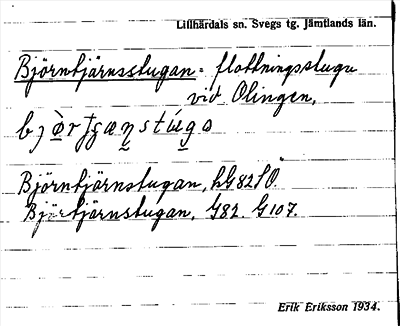 Lillhärdals sn. Svegs tg. Jämtlands län.
Björntjärnsstugan = flottningsstuga
vid Olingen.
Björntjärnstugan, hG82SO.
Björntjärnstugan, G82. G107.
Erik Eriksson 1934.